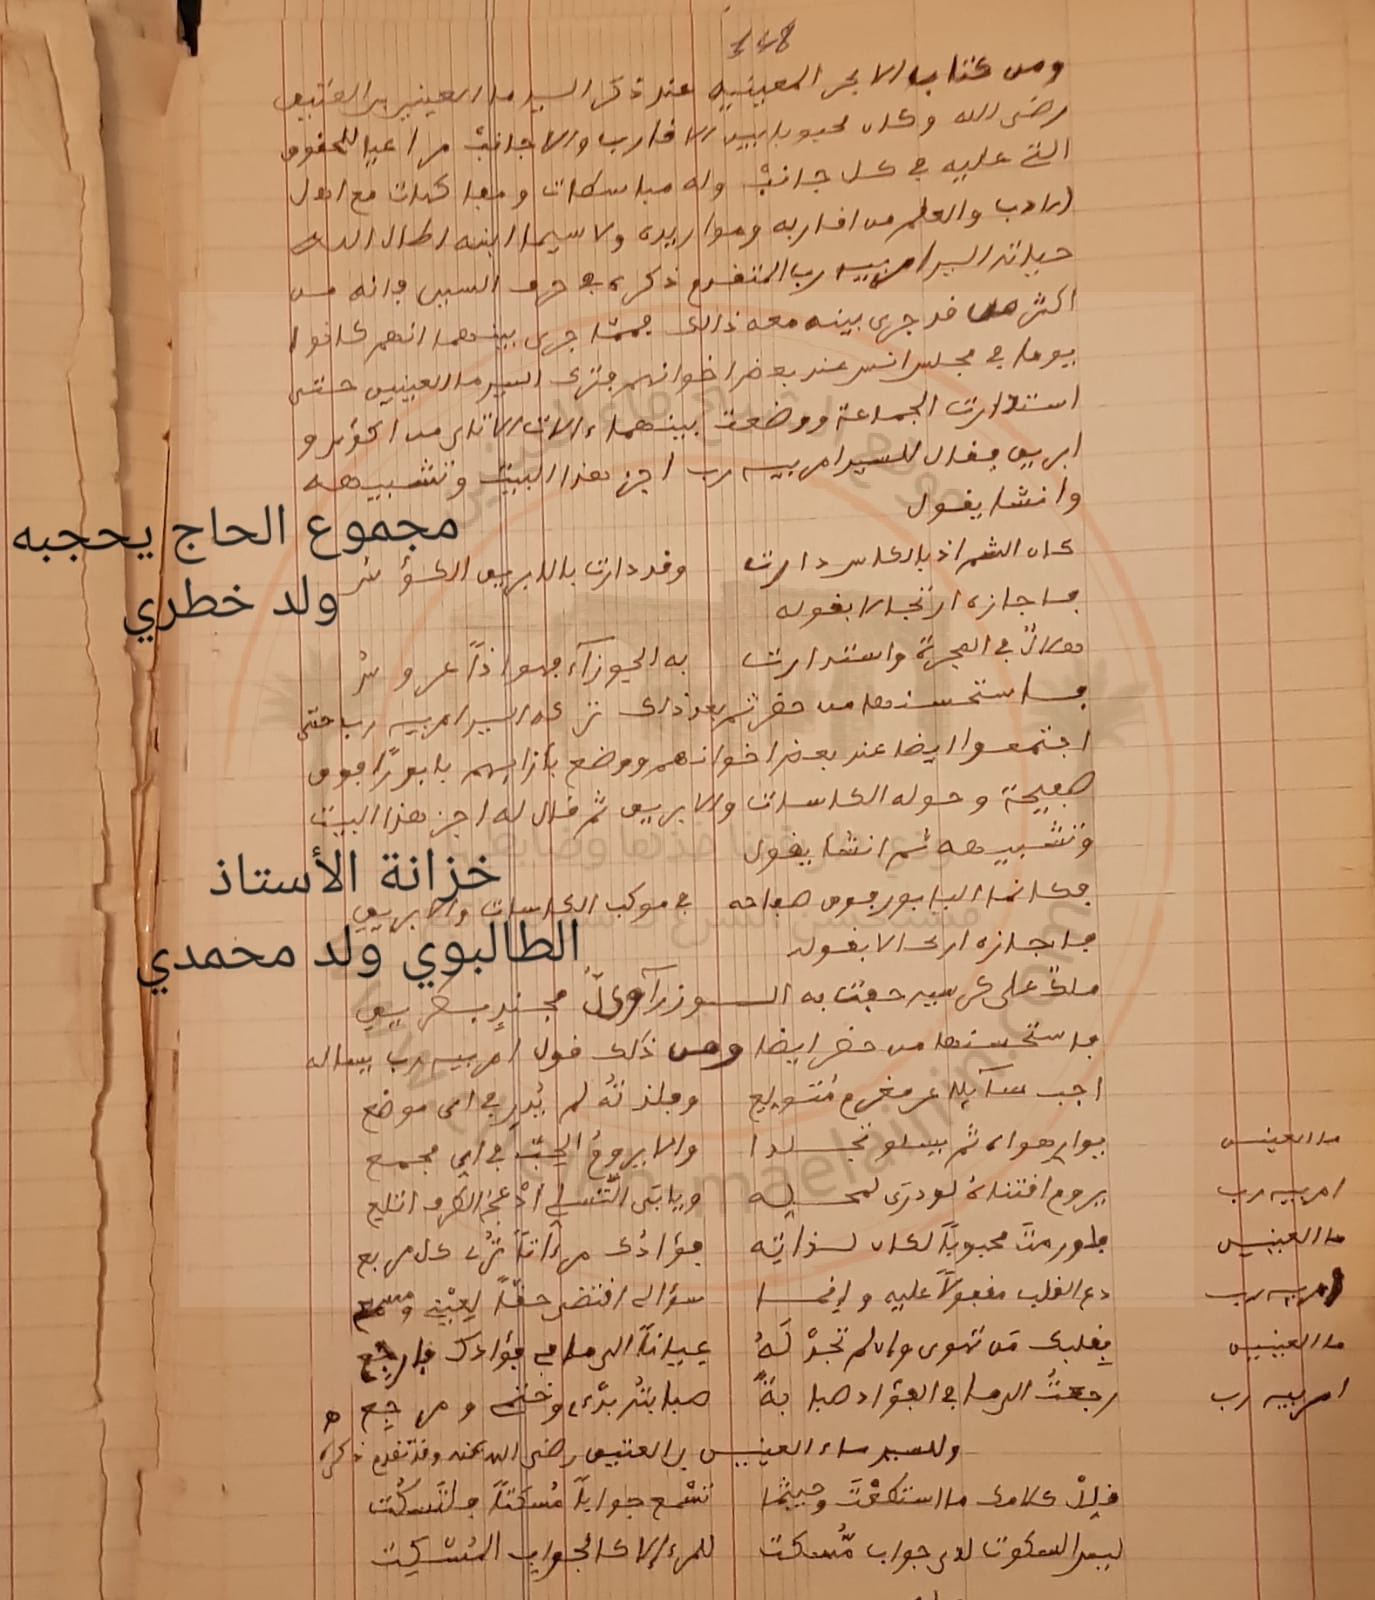 148
ومن كتاب الابحر المعينيه عند ذكر السيد ماء العينين بن العتيق
رضى الله وكان محبوبا بين الاقارب والاجانب مراعيا للحقوق
التى عليه فى كل جانب وله مباسطات ومفاكهات مع اهل
الادب والعلم من اقاربه ومواريده ولا سيما ابنه اطال الله
حياته السيد امربيه رب المتقدم ذكره فى حرف السين فانه من
اكثر من قد جرى بينه معه ذالك فمما جرى بينهما انهم كانوا
يوما فى مجلس انس عند بعض اخوانهم فترك السيد ماء العينين حتى
استدارت الجماعة ووضعت بينهما ءالات الاتاى من اكؤس و
ابريق فقال للسيد امربيه رب اجز هذا البيت وتشبيهه
وانشا يقول
كان الشم اذ بالكاس دارت وقد دارت بالابريق الكؤس
فاجازه ارتجالا بقوله
هلال فى المجرة واستدارت به الجوزآء فهو اذا عروس
فاستحسنها من حضر ثم بعد ذلك تركه السيد امربيه رب حتى
اجتمعوا ايضا عند بعض اخوانهم ووضع بازايهم بابورا فوق
صفيحة وحوله الكاسات والابريق ثم قال له اجز هذا البيت
وتشبيهه ثم انشا يقول
فكانما البابور فوق صفاحه فى موكب الكاسات والابريق
فاجازه ارتجالا بقوله
ملك على كرسيه حفت به الـوزرآء مجند بطريق
فاستحسنها من حضر ايضا ومن ذلك قول امربيه رب يساله
اجب سآيلا عن مغرم متوسع ولذته لم يدر فى اى موضع
ماء العينين يوارى هواه ثم يسلو تجلدا والا يروق الحب فى اى مجمع
امربيه رب يروم افتتانا لو درى لمحيله ويابى التسلى
ماء العينين فلو رمت محبوبا لكان لذاته فؤادك مرءاتا ترى كل مربع
امربيه رب دع القلب مفعولا عليه وانما سؤالى اقتضى حقا لعين ومسمع
ماء العينين بقلبك من تهوى وان لم تجد له عيانا الى ما فى فؤادك فارجع
امربيه رب رجعت الى ما فى الفؤاد صبابة صبا بترب وختم ومرجع
وللسيد ماء العينين بن العتيق رضى الله عنه وقد تقدم ذكره
قلل كلامك ما استطعت وحيثما تسمع جوابا مسكتا فلتسكت
ليس السكوت لدى جواب مسكت للمرء الا كالجواب المسكت
مجموع الحاج يحجبه
ولد خطري
خزانة الأستاذ
الطالبوي ولد محمدي